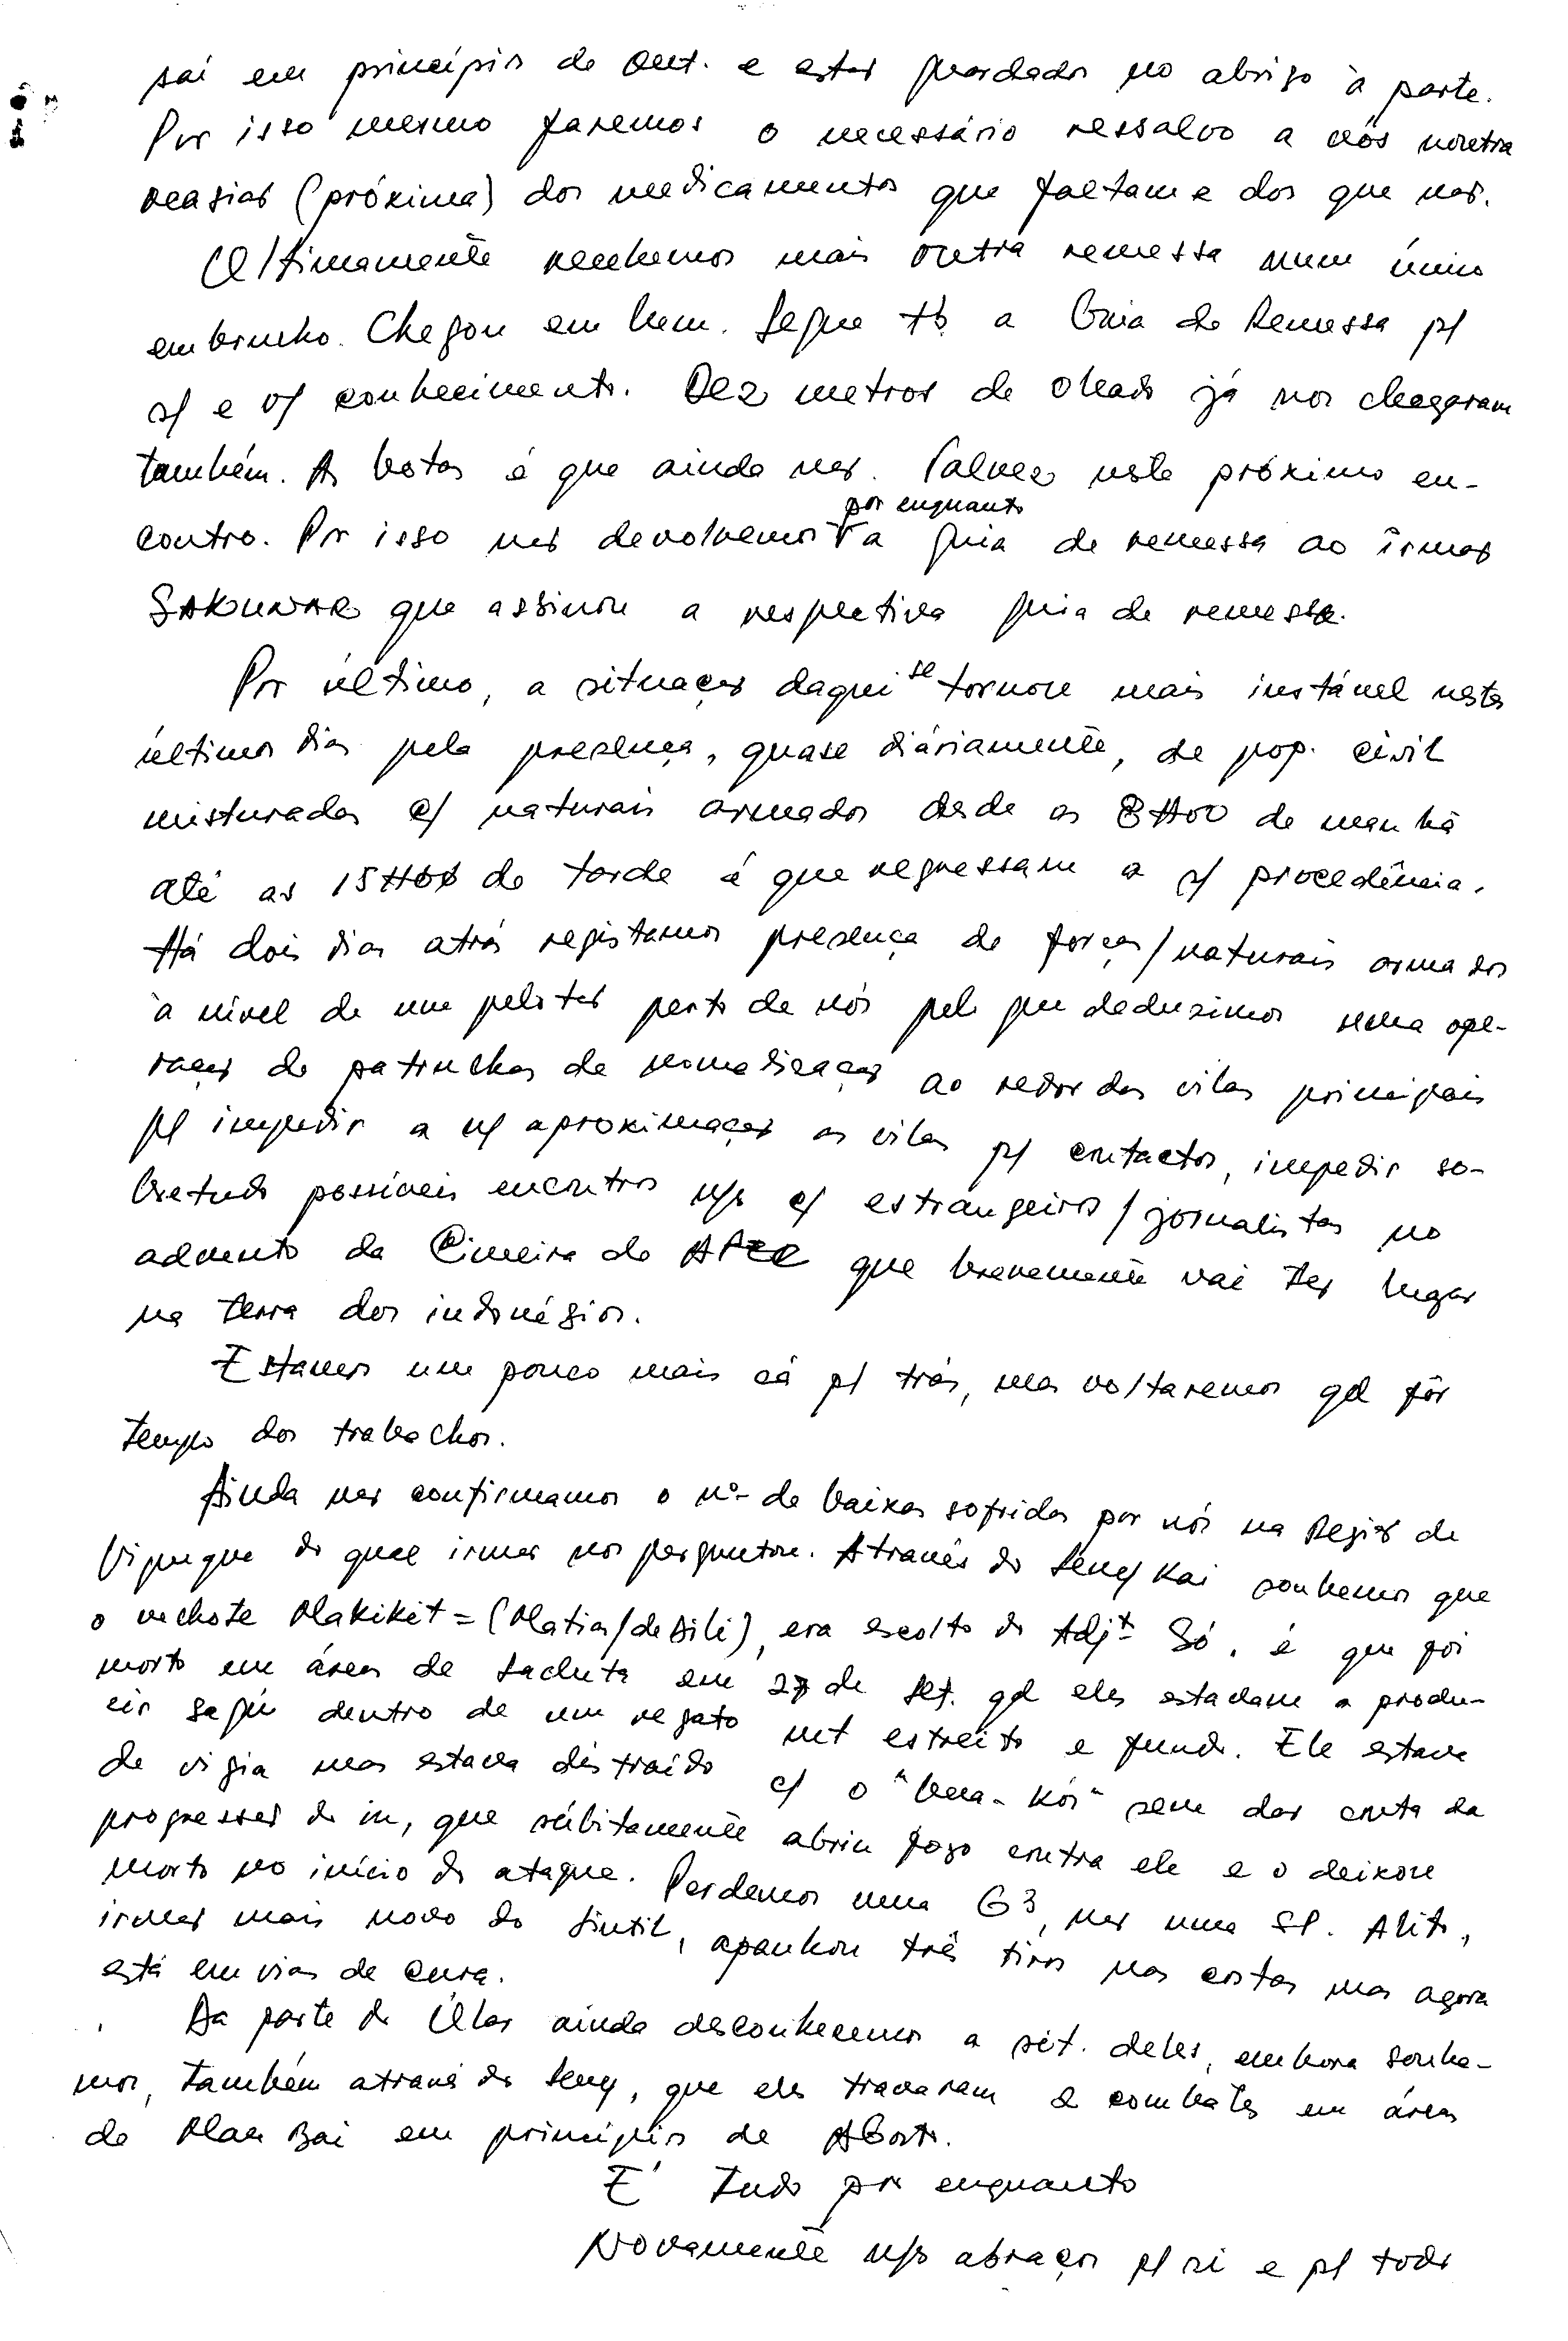 saí em princípios de Out. e estão guardados no abrigo à parte.
Por isso mesmo faremos o necessário ressalvo a vós noutra
ocasião (próxima) dos medicamentos que faltam e dos que não.
Ultimamente recebemos mais outra remessa num único
embrulho. Chegou em bem. Segue tb. a Guia de Remessa p/
s/ e v/ conhecimento. Dez metros de oleado já nos chegaram
também. As botas é que ainda não. Talvez neste próximo en-
contro. Por isso não devolvemos por enquanto a guia de remessa ao irmão
SAKUNAR que assinou a respectiva guia de remessa.
Por último, a situação daqui se tornou mais instável nestes
últimos dias pela presença, quase diáriamente, de pop. civil
misturados c/ naturais armados desde as 8H00 de manhã
até as 15H00 de tarde é que regressam a s/ procedência.
Há dois dias atrás registamos presença de forças/naturais armados
à nível de um pelotão perto de nós pelo que deduzimos uma ope-
ração de patrulhas de nomadização ao redor das vilas principais
p/ impedir a n/ aproximação as vilas p/ contactos, impedir so-
bretudo possíveis encontros n/s c/ estrangeiros/jornalistas no
advento da Cimeira da APEC que brevemente vai ter lugar
na terra dos indonésios.
Estamos um pouco mais cá p/ trás, mas voltaremos qd fôr
tempo dos trabalhos.
Ainda não confirmamos o nº de baixas sofridas por nós na Região de
Viqueque do qual irmão nos perguntou. Através do Seng Kai soubemos que
o velhote Makikit = (Matias/de Dili), era escolta do Adjt Só, é que foi
morto em área de Lacluta em 27 de Set. qd eles estavam a produ-
cir sagú dentro de um regato mt estreito e fundo. Ele estava
de vigia mas estava distraído c/ o "bua-kói" sem dar conta da
progressão do in, que súbitamente abriu fogo contra ele e o deixou
morto no início do ataque. Perdemos uma G3, não uma SP. Alito,
irmão mais novo do Sintil, apanhou três tiros nas costas mas agora
está em vias de cura.
Da parte do Ular ainda desconhecemos a sit. deles, embora soube-
mos, também através do Seng, que eles travaram 2 combates em áreas
de Mau Bai em princípios de Agosto.
É tudo por enquanto
Novamente n/s abraços p/ si e p/ todos